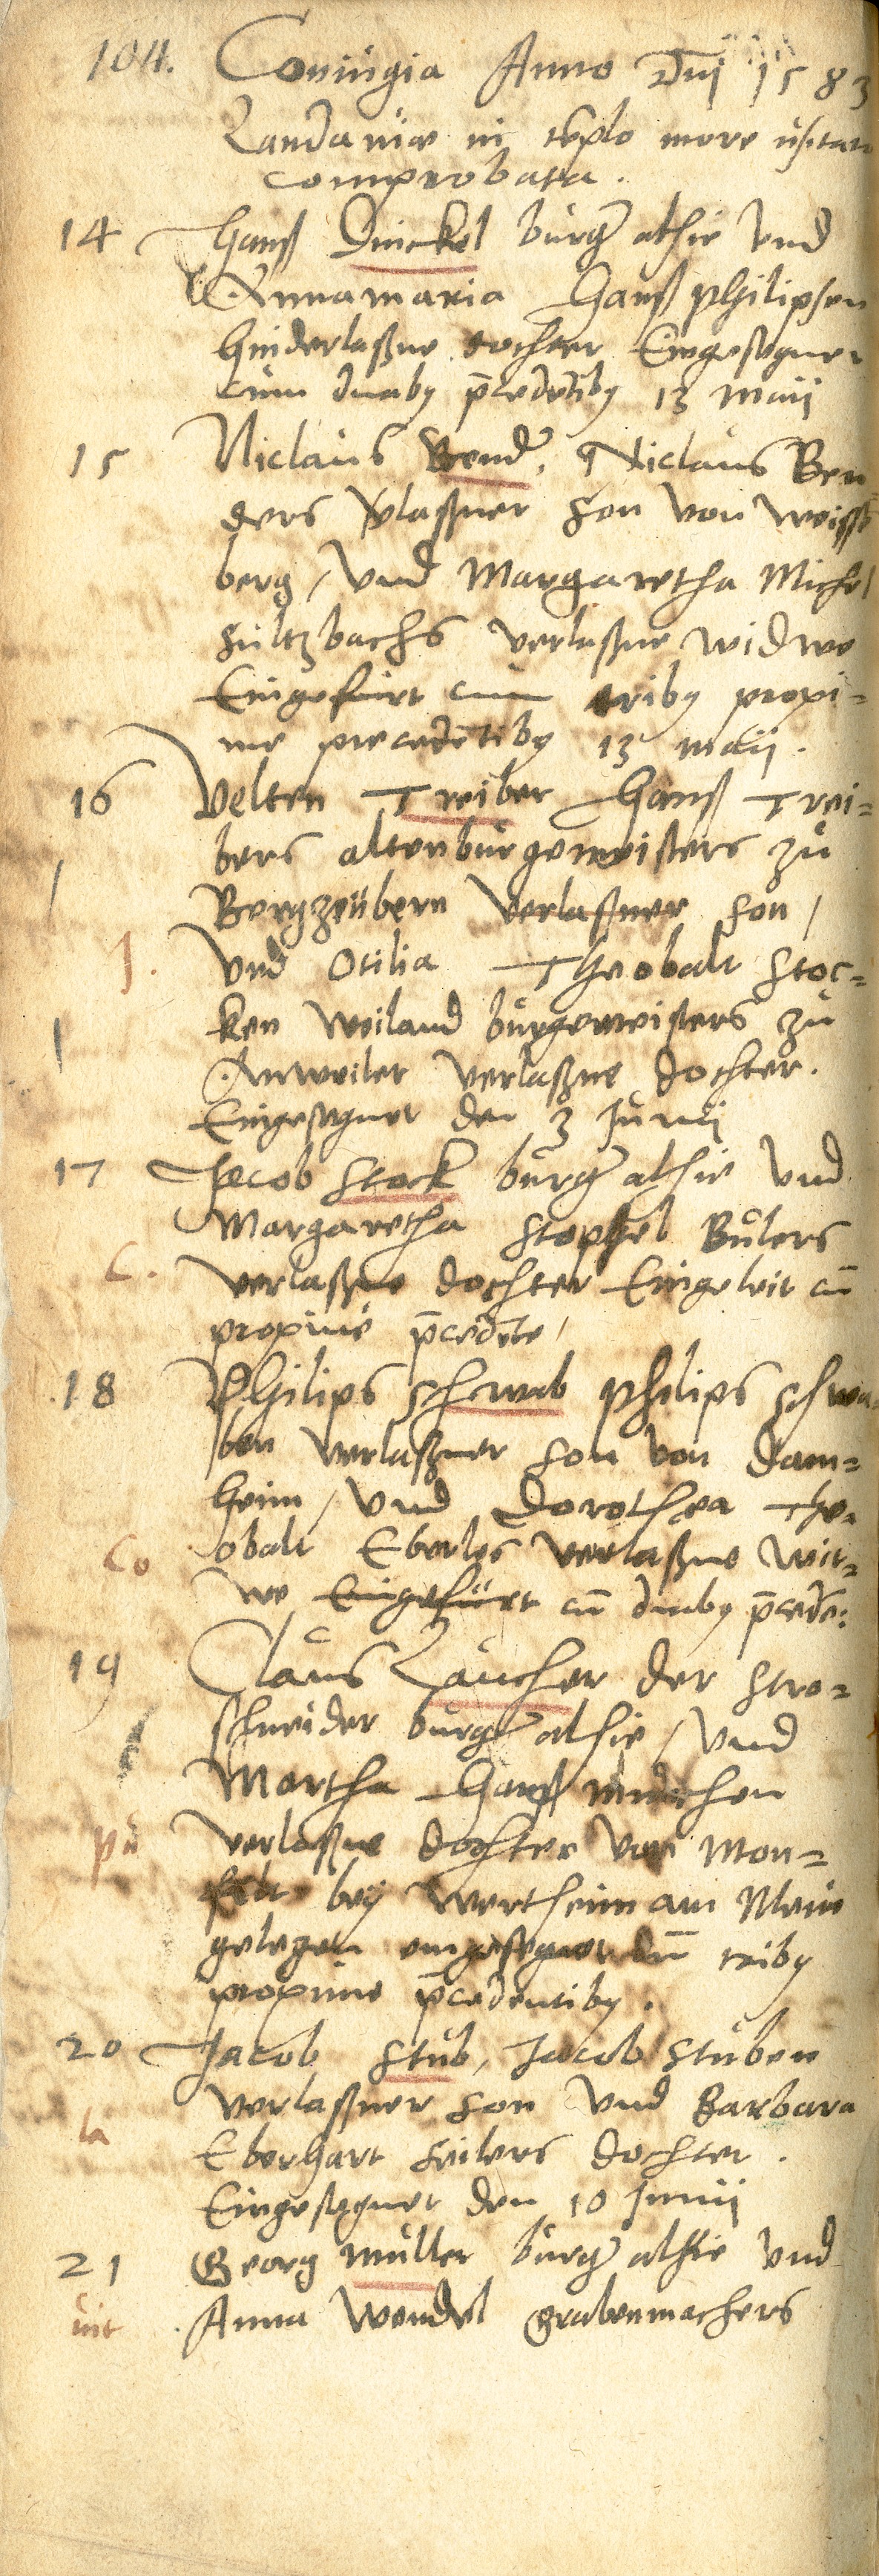 104. Coniugia Anno Dni 1583
Landaviae in tēplo more usitato
comprobata.
14 Hanß Dinckel burger alhie vnd
Annamaria Hanß Philipsen
hinderlaßne dochter Eingesegnet
cum duaby p̄cedētiby 13 Maii
15 Niclaus Bender, Niclaus Ben
ders vlaßner son von Weisse
berg / vnd Margaretha Michel
Sultzbachs verlaßne widwe
Eingefürt cum triby proxi=
me precedētiby 13 Maii.
16 Velten Treiber Hanß Trei=
bers altenburgemeisters zu
Bergzabern verlaßner son /
J. vnd Otilia Theobalt Stoc=
ken weiland burgemeisters zu
Anweiler verlaßne dochter.
Eingesegnet den 3 Junii
17 Jacob Stock burger alhie vnd
Margaretha Stophel Bulers
C. verlaßne dochter Eingeleit cū
proxime p̄cedēte /
18 Philips Schwab Philips Schwa=
ben verlaßner son von Dam=
heim / vnd Dorothea The=
Co obalt Eberles verlaßne wit=
we Eingefürt cū duaby p̄cedē:
19 Claus Laucher der stro=
schneider burger alhie / vnd
Martha Hanß
pu verlaßne dochter von Mon=
felt bey Wertheim am Mein
gelegen eingesegnet cū triby
proxime p̄cedentiby.
20 Jacob Stub, Jacob Stuben
verlaßner son vnd Barbara
la Eberhart Seilers dochter.
Eingesegnet den 10 Junii
21 Georg Muller burger alhie vnd
uit Anna Wendel Grabenmachers